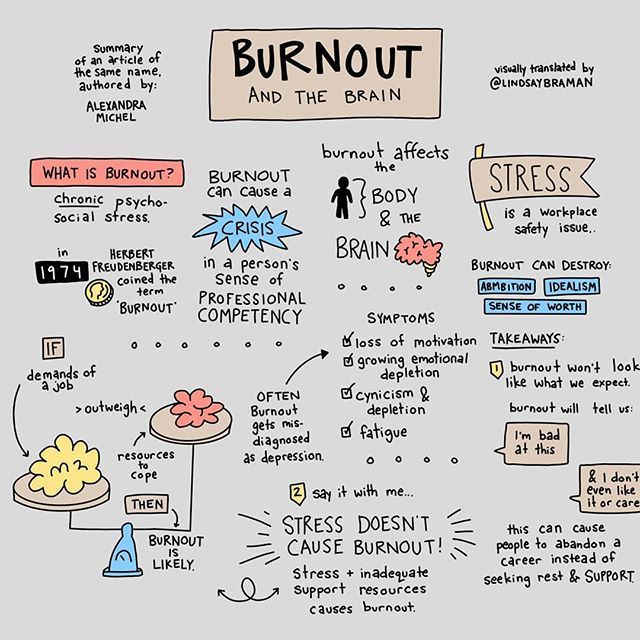 Summary
of an article of
the same name,
authored by:
ALEXANDRA
MICHEL
BURNOUT
AND THE BRAIN
visually translated by
@LINDSAYBRAMAN
WHAT IS BURNOUT?
chronic psycho-
social stress.
in
1974
HERBERT
FREUDENBERGER
coined the
term
'BURNOUT'
BURNOUT
can cause a
CRISIS
in a person's
sense of
PROFESSIONAL
COMPETENCY
burnout affects
the
BODY
& THE
BRAIN
STRESS
is a workplace
safety issue..
BURNOUT CAN DESTROY:
ABMBITION
IDEALISM
SENSE OF WORTH
IF
demands of
a job
> outweigh <
resources
to
cope
THEN
BURNOUT
IS
LIKELY.
OFTEN
Burnout
gets mis-
diagnosed
as depression.
SYMPTOMS
loss of motivation
growing emotional
depletion
cynicism &
depletion
fatigue
TAKEAWAYS:
1 burnout won't look
like what we expect.
burnout will tell us:
I'm bad
at this
& I don't
even like
it or care
this can cause
people to abandon a
career instead of
seeking rest & SUPPORT.
2 say it with me...
STRESS DOESN'T
CAUSE BURNOUT!
Stress + inadequate
support resources
causes burnout.